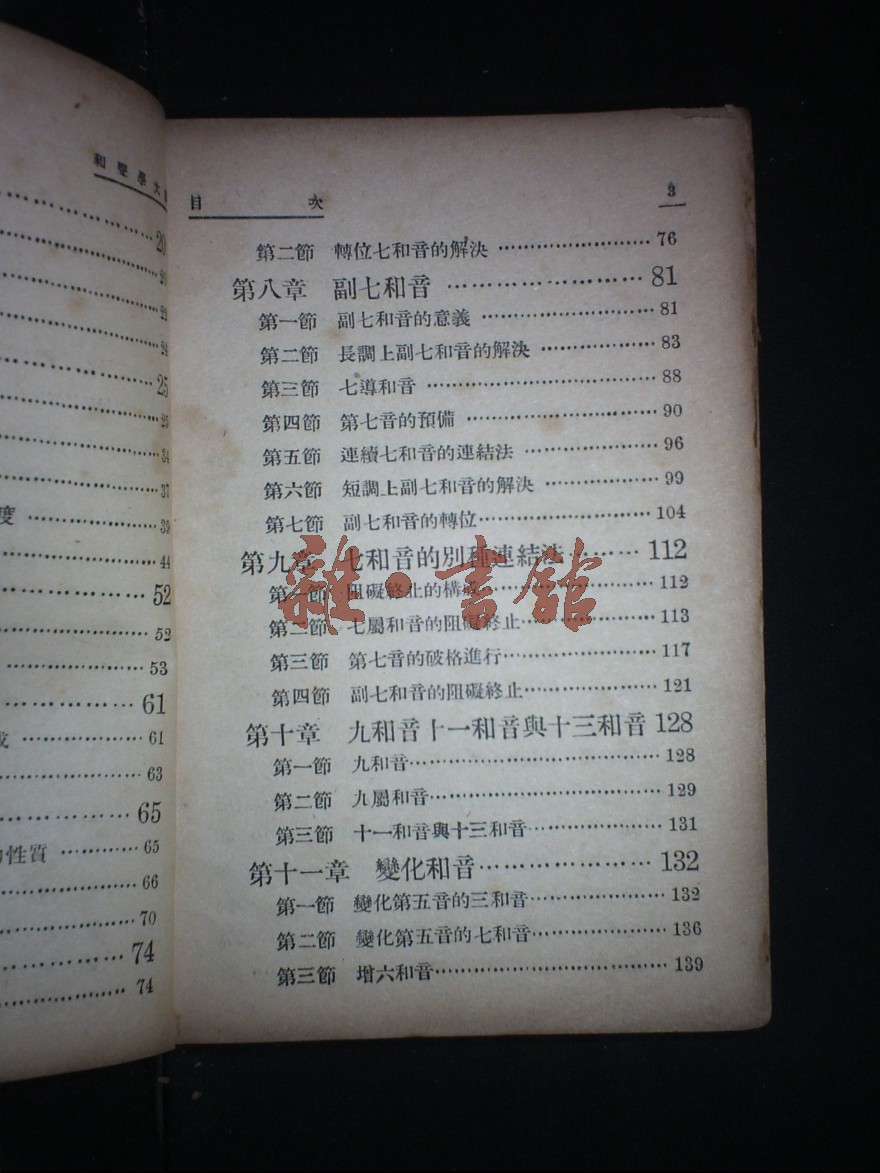 和聲學大
20
20
22
24
25
25
34
37
度 39
44
52
52
53
61
61
63
65
性質 65
66
70
74
74
目次 3
第二節 轉位七和音的解決 76
第八章 副七和音 81
第一節 副七和音的意義 81
第二節 長調上副七和音的解決 83
第三節 七導和音 88
第四節 第七音的預備 90
第五節 連續七和音的連結法 96
第六節 短調上副七和音的解決 99
第七節 副七和音的轉位 104
第九章 七和音的別種連結法 112
第一節 阻礙終止的構成 112
第二節 七屬和音的阻礙終止 113
第三節 第七音的破格進行 117
第四節 副七和音的阻礙終止 121
第十章 九和音十一和音與十三和音 128
第一節 九和音 128
第二節 九屬和音 129
第三節 十一和音與十三和音 131
第十一章 變化和音 132
第一節 變化第五音的三和音 132
第二節 變化第五音的七和音 136
第三節 增六和音 139
雜·書館